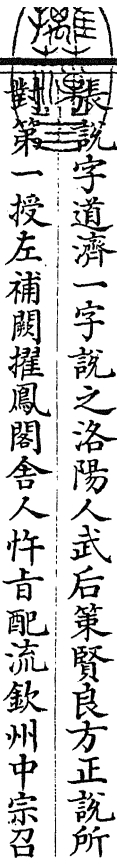 張說字道濟一字說之洛陽人武后策賢良方正說所
對第一授左補闕擢鳳閣舍人忤旨配流欽州中宗召